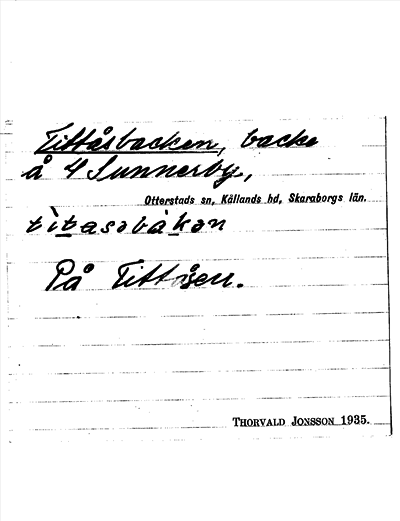 Tittåsbacken, backe
å 4 Sunnerby,
Otterstads sn, Kållands hd, Skaraborgs län.
tìtasəbàkən
På Tittåsen.
THORVALD JONSSON 1935.